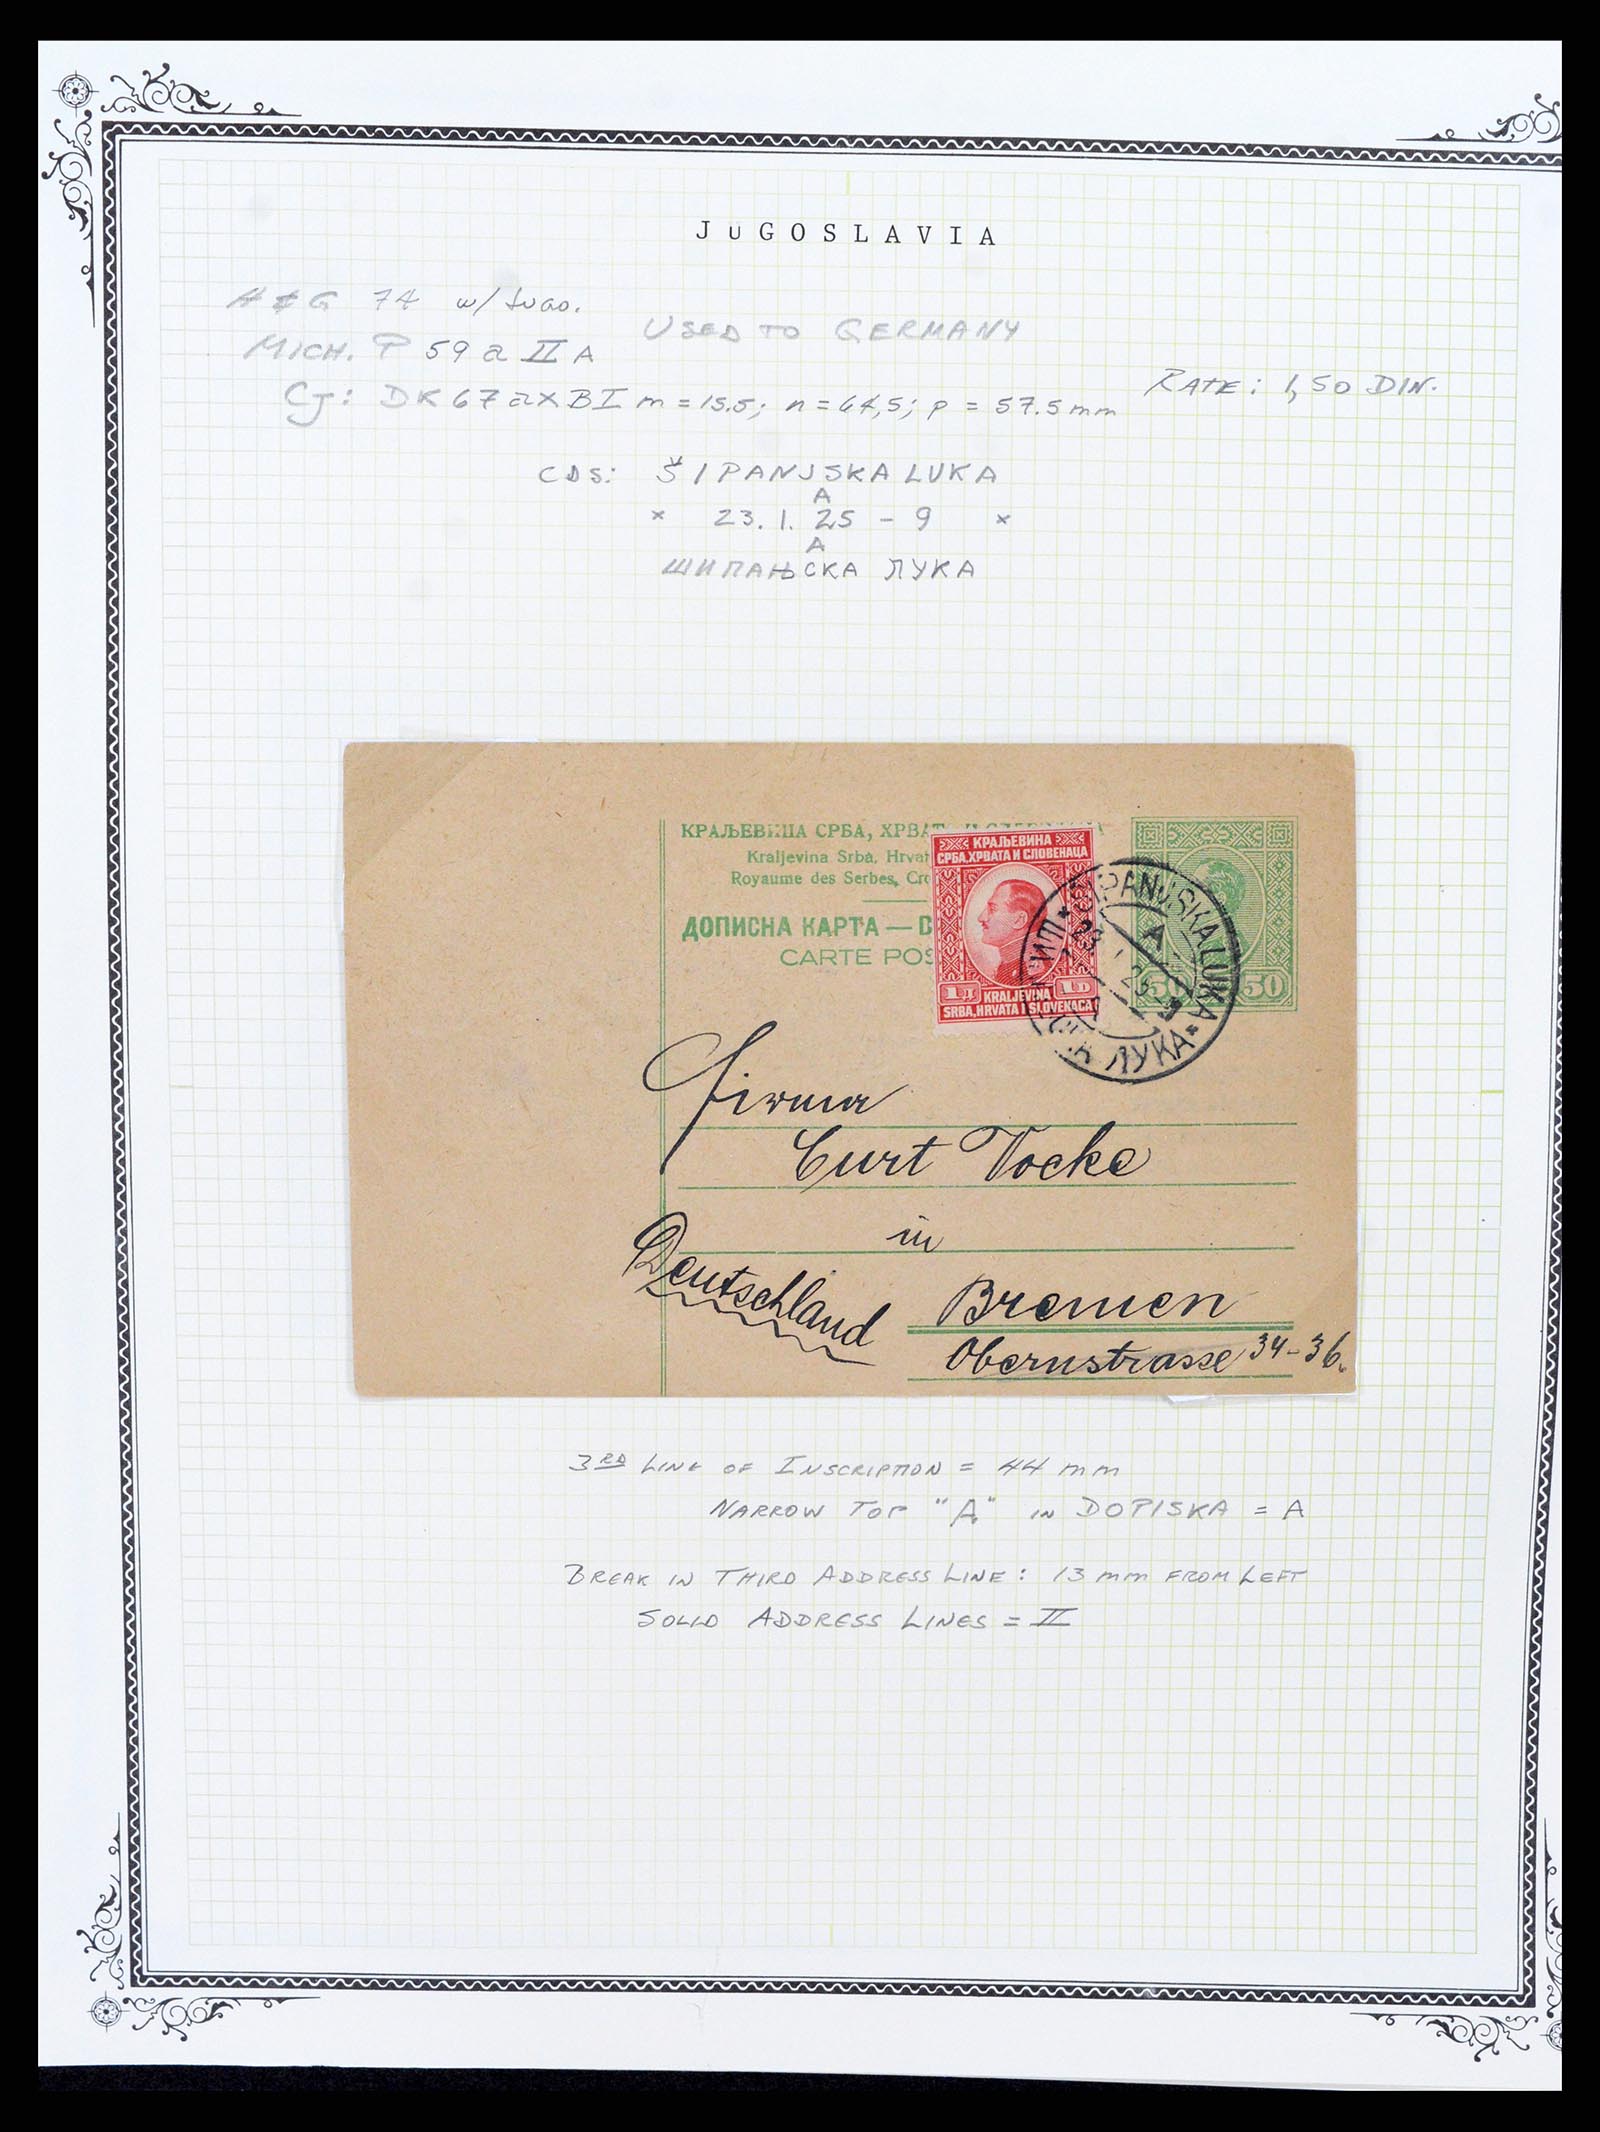 JUGOSLAVIA
H & G 74 w/
USED TO GERMANY
MICH. P 59 a II A
RATE: 1,50 DIN.
CJ: DK 67 a x B I m = 15.5; n = 64,5; p = 57.5 mm
CDS: ŠIPANJSKA LUKA
A
* 23. 1. 25 - 9 *
A
ШИПАЊСКА ЛУКА
КРАЉЕВИНА СРБА, ХРВАТ
Kraljevina Srba, Hrvat
Royaume des Serbes, Cro
ДОПИСНА КАРТА — D
CARTE POS
КРАЉЕВИНА
СРБА, ХРВАТА И СЛОВЕНАЦА
1 Д 1 D
KRALJEVINA
SRBA, HRVATA I SLOVENACA
50 50
ŠIPANJSKA LUKA
A
23 1 25-9
ЛУКА
Firma
Curt Vocke
in
Deutschland
Bremen
Obernstrasse 34-36.
3RD LINE OF INSCRIPTION = 44 mm
NARROW TOP "A" IN DOPISKA = A
BREAK IN THIRD ADDRESS LINE: 13 mm FROM LEFT
SOLID ADDRESS LINES = II